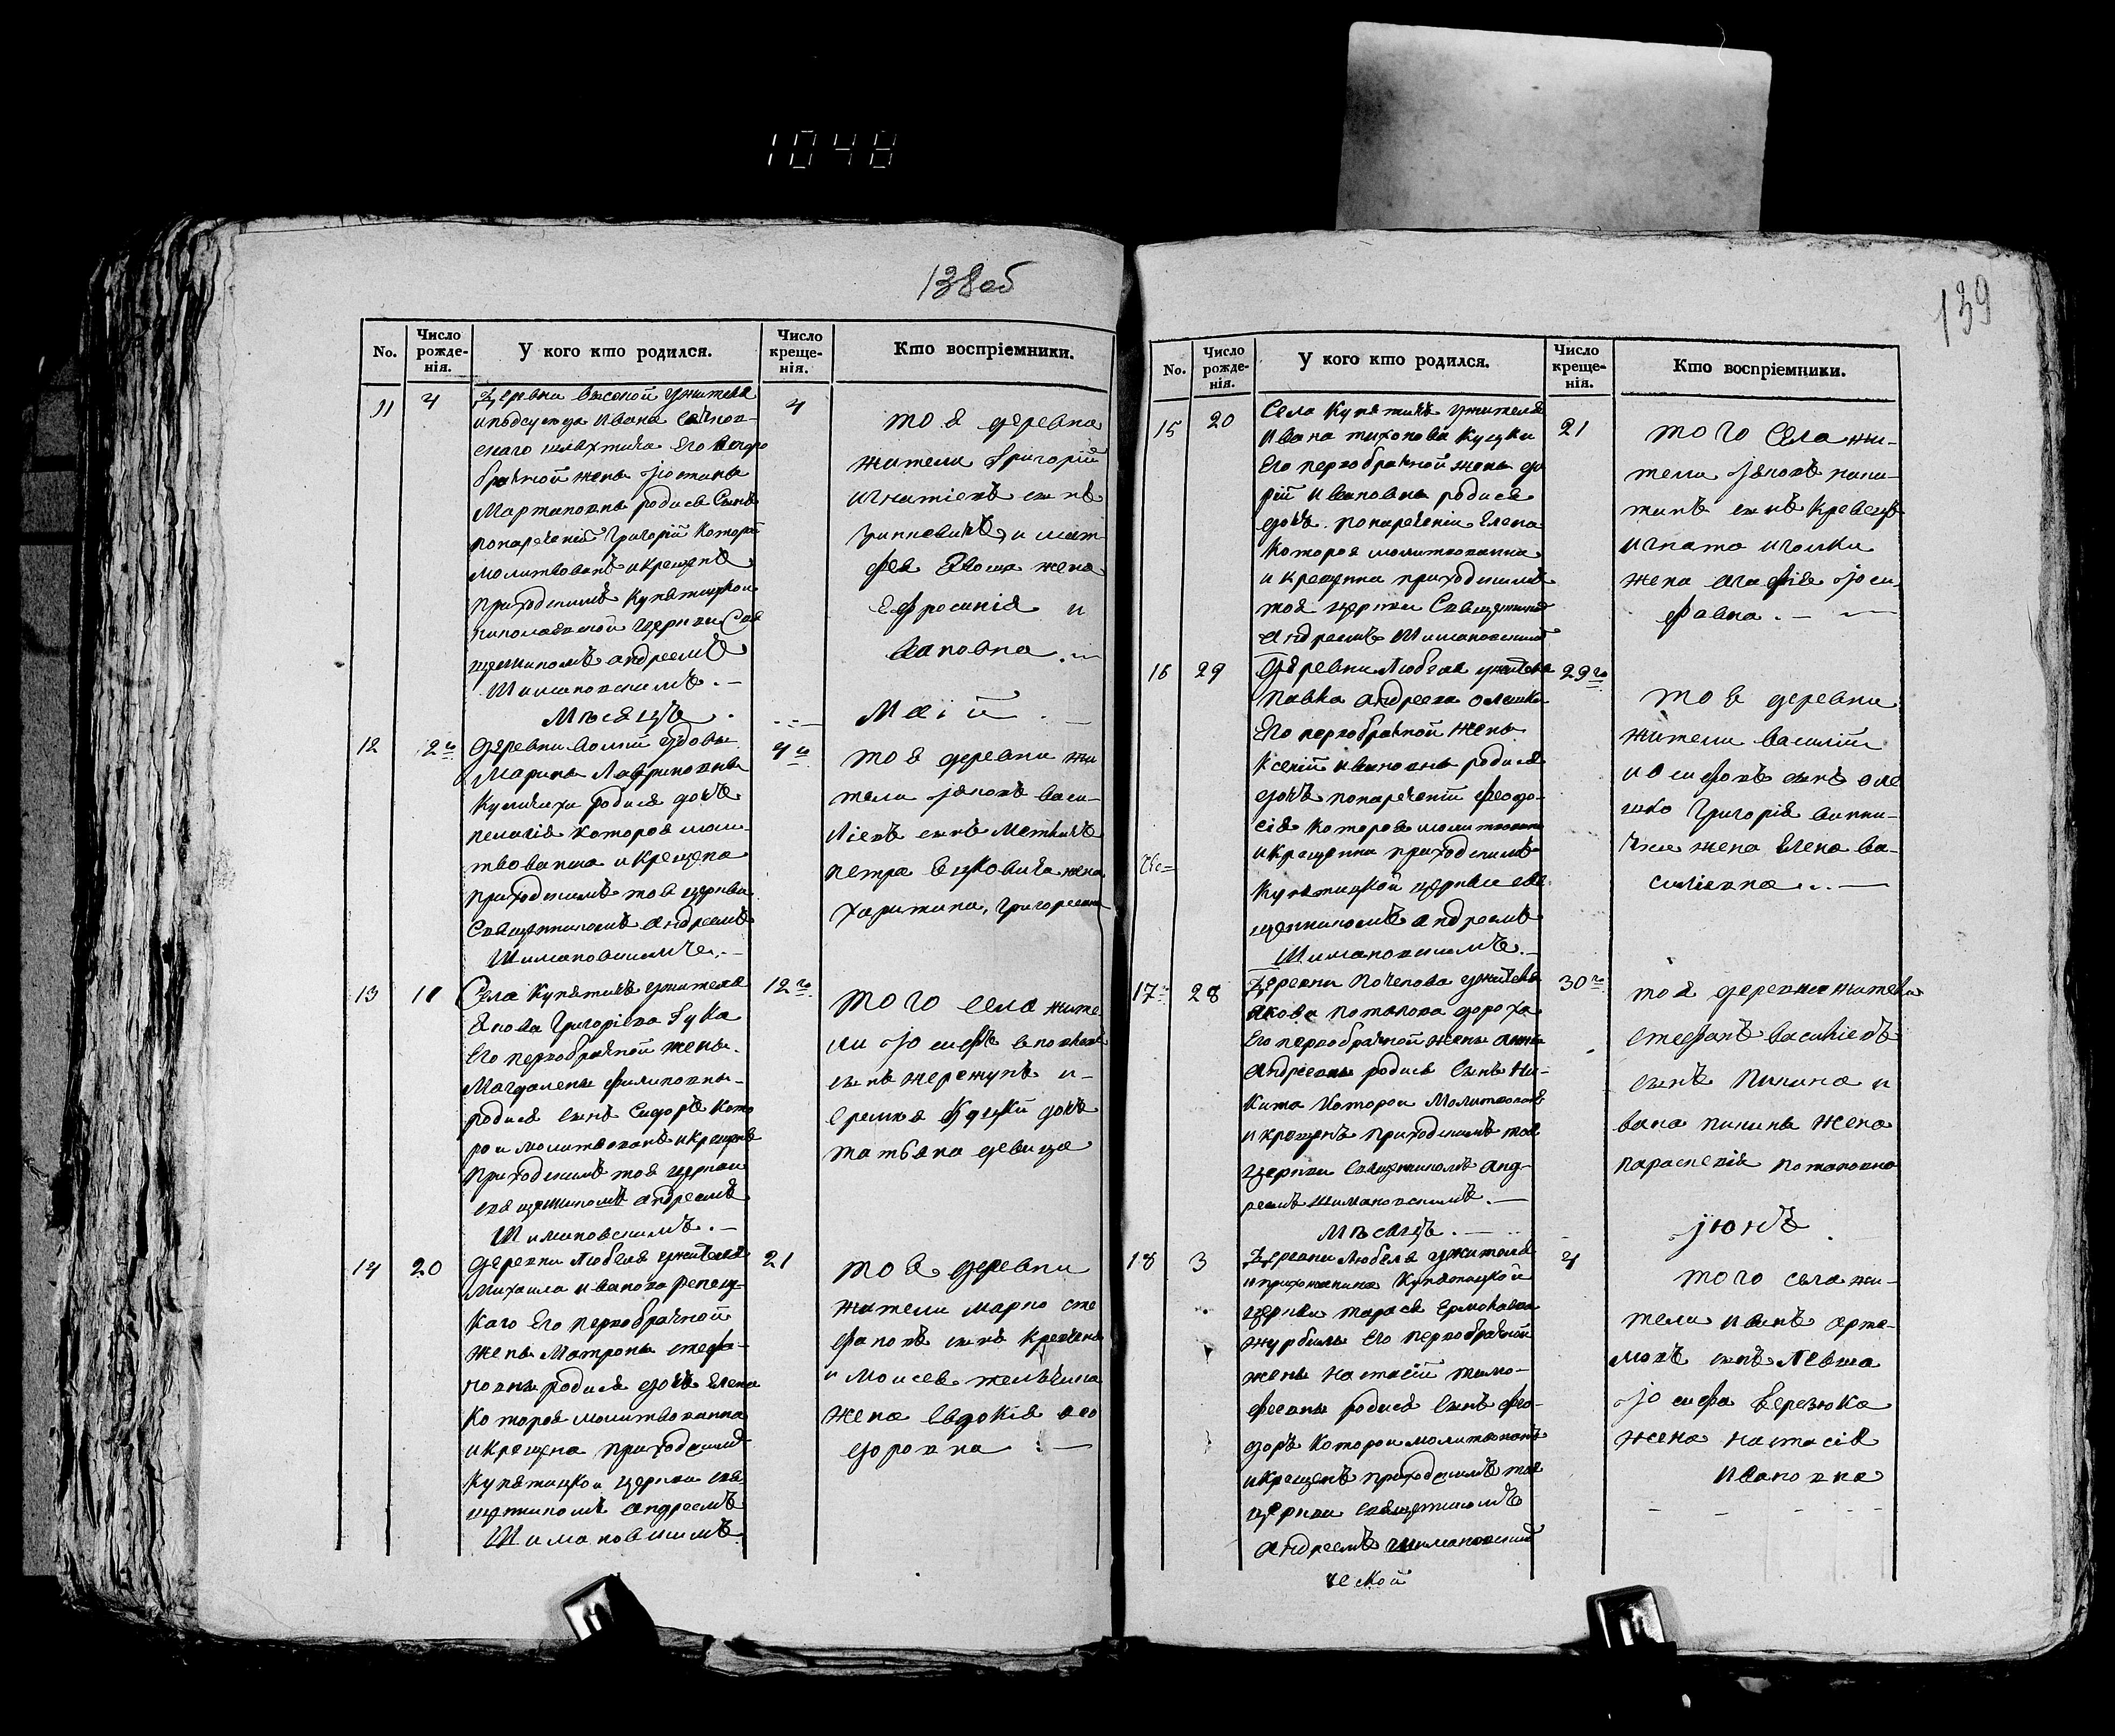 1048
138об
No.
Число рожде-нія.
У кого кто родился.
Число креще-нія.
Кто воспріемники.
11
4
Деревни Высокой ужителя
Ивана
шляхтича Его
брачной жены Іюстины
Мартиновны родися Сынъ
Григорій Которой
молитвованъ икрещенъ
приходскимъ Купятицкой
николаевской церкви Свя
щенникомъ андреемъ
Шимановскимъ. —
4
тоя деревни
жители Григорій
игнатіевъ сынъ
и мат
фея жена
Ефросинія и
вановна
Мѣсяцъ
Маій
12
2го
деревни удовы
Марины Лавриновны
родися дочь
пелагія которая моли
твованна икрещена
приходскимъ тоя церкви
Священникомъ андреемъ
Шимановскимъ. —
4го
тоя деревни жи
тели яковъ васи-
ліевъ сынъ
петра жена
харитина, григореевна
13
11
Села Купятичъ ужителя
Якова Григоріева Гука
Его первобрачной жены
Магдалены филиповны
родися сынъ Сидоръ Кото
рои молитвованъ икрещенъ
приходскимъ тоя церкви
священникомъ андреемъ
Шимановскимъ. —
12го
того села жите
ли Іосифъ
сынъ и
дочь
татьяна девица
14
20
деревни Любеля ужителя
Михаила иванова
каго Его первобрачной
жены Матроны стефа-
новны родися дочь Елена
Которая молитвованна
икрещена приходскимъ
Купятицкои церкви свя
щенникомъ андреемъ
Шимановскимъ
21
тоя деревни
жители марко сте
фановъ сынъ
и Моисея
жена Евдокія ѳео
доровна —
139
No.
Число рожде-нія.
У кого кто родился.
Число креще-нія.
Кто воспріемники.
15
20
Села Купятичъ ужителя
Ивана тихонова Куцки
Его первобрачной жены да
рій Ивановны родися
дочь понареченіи Елена
Которая молитвованна
и крещенна приходскимъ
тоя церкви Священникомъ
андреемъ Шимановскимъ
21
того Села жи-
тели яковъ ники-
тинъ сынъ
игната
жена агафія Іоси
фовна. —
16
29
Деревни Любеля ужителя
Павла андреева олешка
Его первобрачной жены
Ксеніи ивановны родися
дочь понареченіи феодо-
сія которая молитвованна
икрещенна приходскимъ
Купятицкой церкви свя
щенникомъ андреемъ
Шимановскимъ. —
29го
тоя деревни
жители василій
иосифовъ сынъ оле
шко Григорія
жена Елена ва-
силіевна. —
17
28
Деревни Поченова ужителя
якова потапова дороха
Его первобрачной жены анны
андреевны родися Сынъ Ни-
кита Которои Молитвованъ
икрещенъ приходскимъ тоя
церкви священникомъ анд-
реемъ шимановскимъ. —
30го
тоя деревни жители
стефанъ василіевъ
сынъ Пилипа и
вана жена
параскевія потаповна
Мѣсяцъ. —
Іюнъ
18
3
Деревни Любеля ужителя
иприхожанина Купятицкой
церкви тараса Ермолаева
журбилы Его первобрачной
жены настасіи тимо-
феевны родися Сынъ фео-
доръ Которои молитвованъ
икрещенъ приходскимъ тоя
церкви священникомъ
андреемъ шимановским
4
того села жи-
тели иванъ арте-
мовъ сынъ Левша
Іосифа Березюка
жена настасія
ивановна
ческой